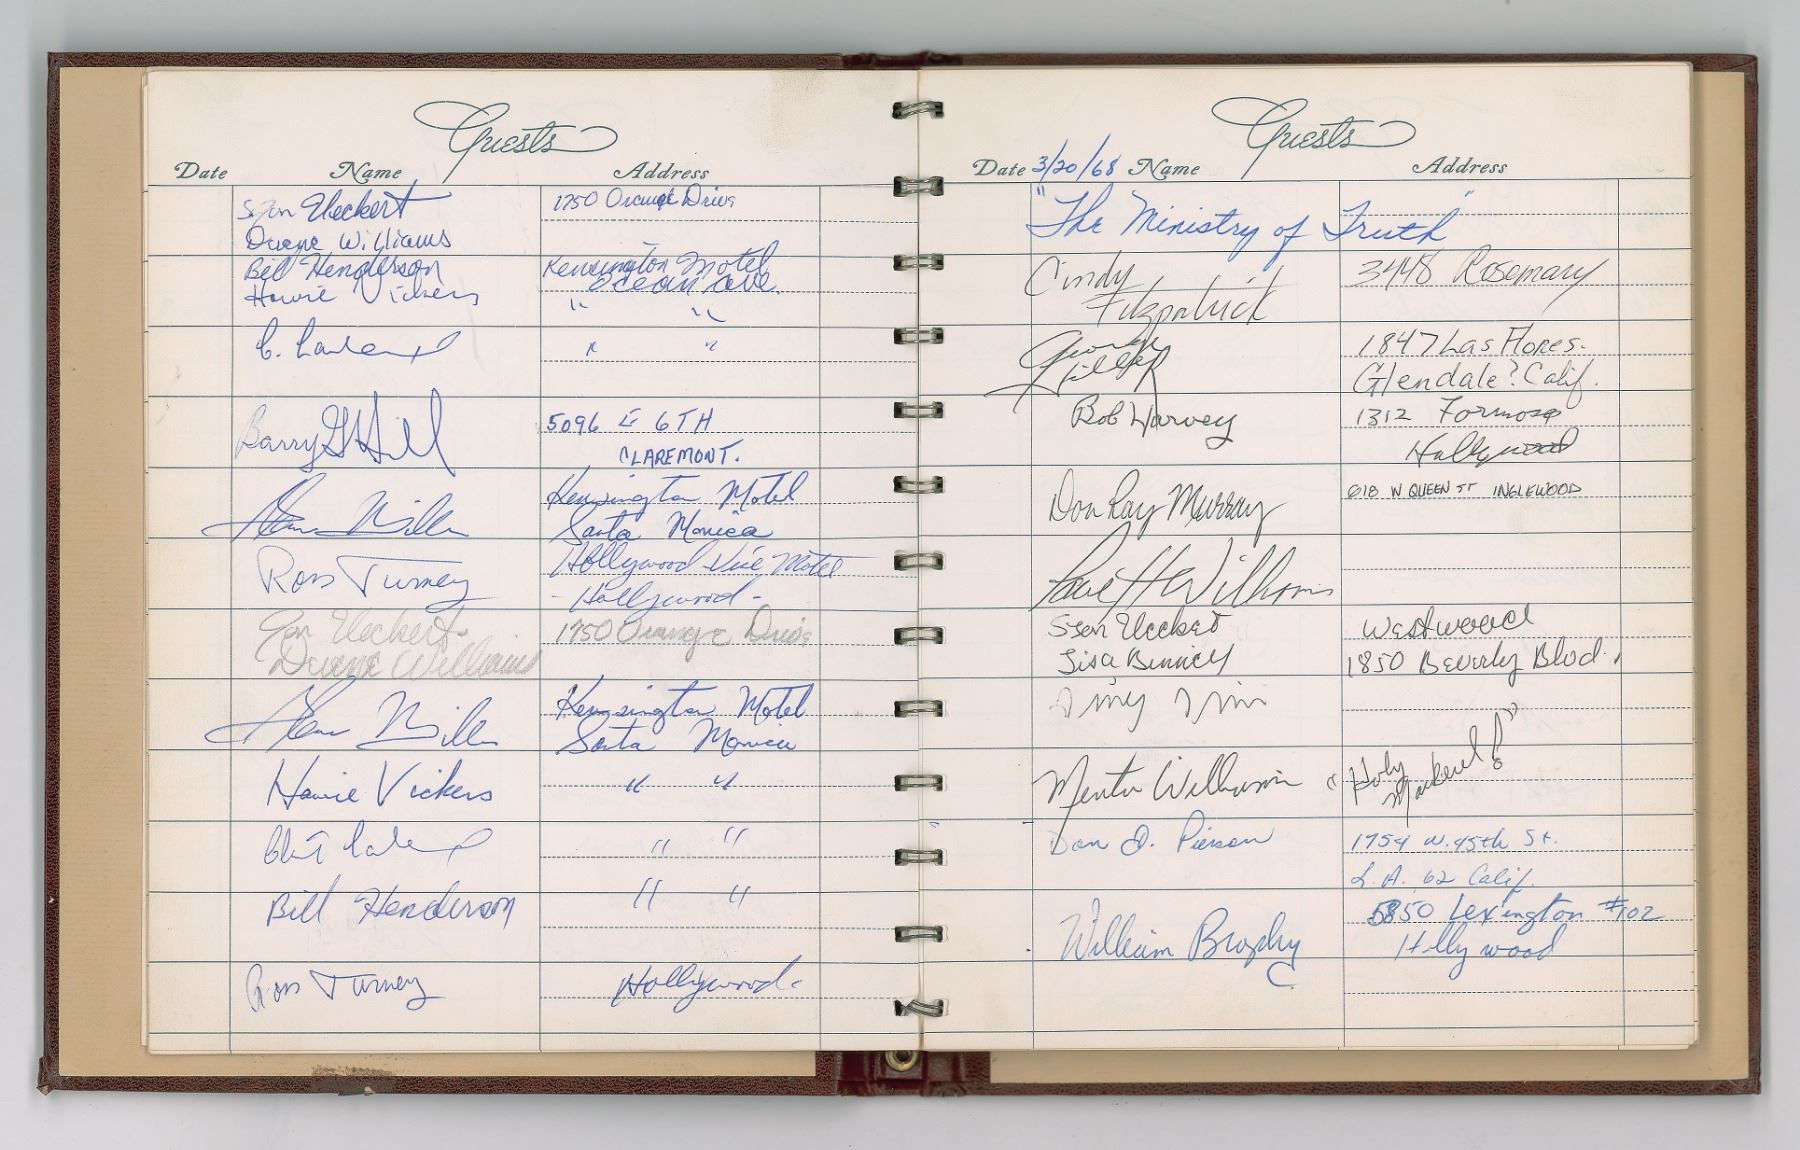 Guests
Date Name Address
Stan Ueckert 1750 Orange Drive
Duane Williams
Bill Henderson Kensington Motel
Howie Vickers Ocean Ave.
" "
C. " "
Barry G Hill 5096 E 6TH
CLAREMONT.
Kensington Motel
Miller Santa Monica
Ross Turney Hollywood Vine Motel
- Hollywood -
Ueckert 1750 Orange Drive
Duane Williams
Kensington Motel
Miller Santa Monica
Howie Vickers " "
" "
Bill Henderson " "
Ross Turney Hollywood.
Guests
Date 3/20/68 Name Address
"The Ministry of Truth"
Cindy 3448 Rosemary
Fitzpatrick
George 1847 Las Flores.
Glendale? Calif.
Bob Harvey 1312 Formosa
Hollywood
Don Ray Murray 618 W QUEEN ST INGLEWOOD
Williams
Stan Ueckert Westwood
Lisa 1850 Beverly Blvd.
Tiny Tim
Mentor Williams "Holy
Mackerel!"
Don D. Pierson 1754 W. 45th St.
L.A. 62 Calif.
5850 Lexington #102
William Brophy Hollywood